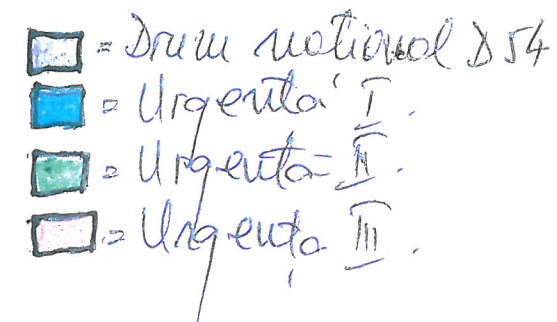 = Drum național D54
= Urgență I.
= Urgență II.
= Urgența III.